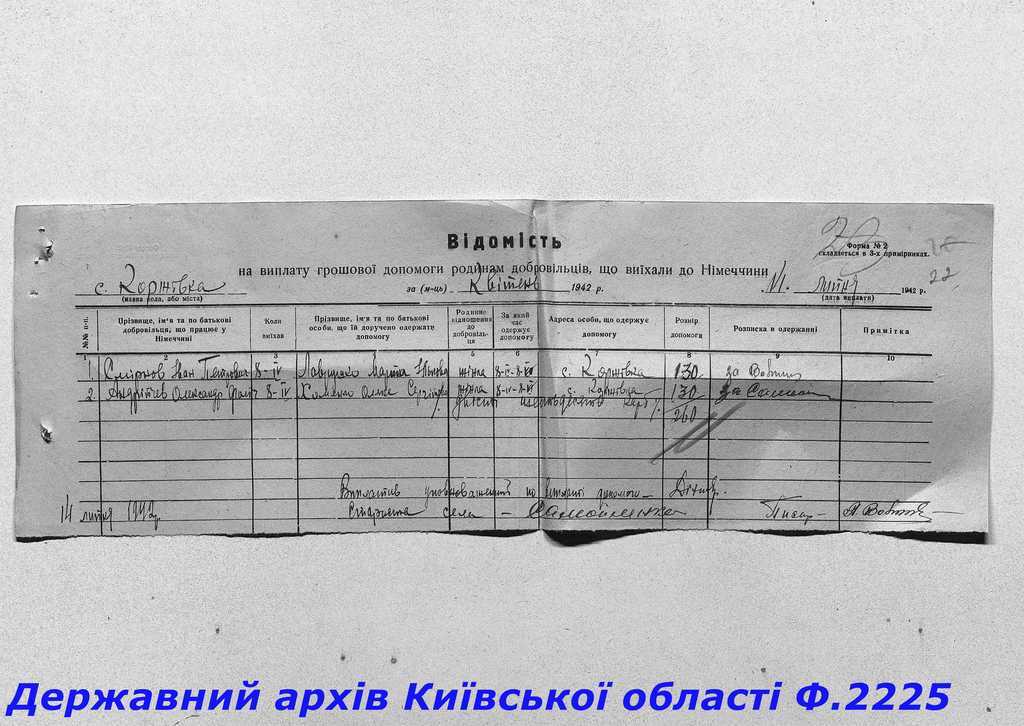 Відомість
Форма № 2
складається в 3-х примірниках.
на виплату грошової допомоги родинам добровільців, що виїхали до Німеччини
с. Коржівка за (м-ць) Квітень 1942 р. VI. липня 1942 р. 22
(назва села, або міста) (дата виплати)
№№ п-п. Прізвище, ім'я та по батькові добровільця, що працює у Німеччині Коли виїхав Прізвище, ім'я та по батькові особи, що їй доручено одержати допомогу Родинне відношення до добровільця За який час одержує допомогу Адреса особи, що одержує допомогу Розмір допомоги Розписка в одержанні Примітка
1 2 3 4 5 6 7 8 9 10
1. Смірнов Іван Петрович 8-IV Марта жінка с. Коржівка 130 за
2. Олександр 8-IV Олена жінка с. Коржівка 130 за
двісті шістьдесять карб.
260
Виплатив уповноважений по виплаті допомоги –
14 липня 1942 р. Староста села – Самойленко Писар –
Державний архів Київської області Ф.2225